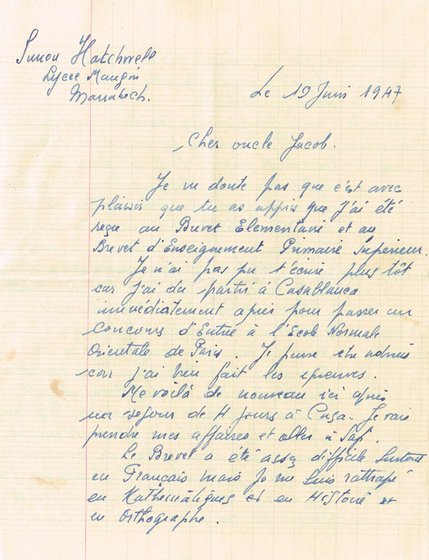 Simon Hatchwell
Lycée Mangin
Marrakech.
Le 19 Juin 1947
Cher oncle Jacob.
Je ne doute pas que c'est avec
plaisir que tu as appris que j'ai été
reçu au Brevet Elementaire et au
Brevet d'Enseignement Primaire Superieur.
Je n'ai pas pu t'écrire plus tôt
car j'ai du partir à Casablanca
immédiatement après pour passer un
concours d'Entrée à l'Ecole Normale
Orientale de Paris. Je pense être admis
car j'ai bien fait les épreuves.
Me voilà de nouveau ici après
un sejour de 4 jours à Casa. Je vais
prendre mes affaires et aller à Safi.
Le Brevet a été assez difficile surtout
en Français mais Je me suis rattrapé
en Mathématiques et en Histoire et
en Orthographe.